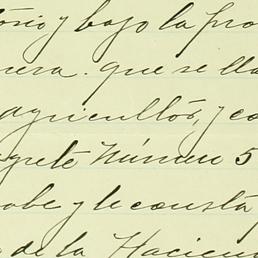 torio y bajo la pro
nera. que se lla
agricultor, y co
quete Número 5
sabe y le consta
de la Haciend